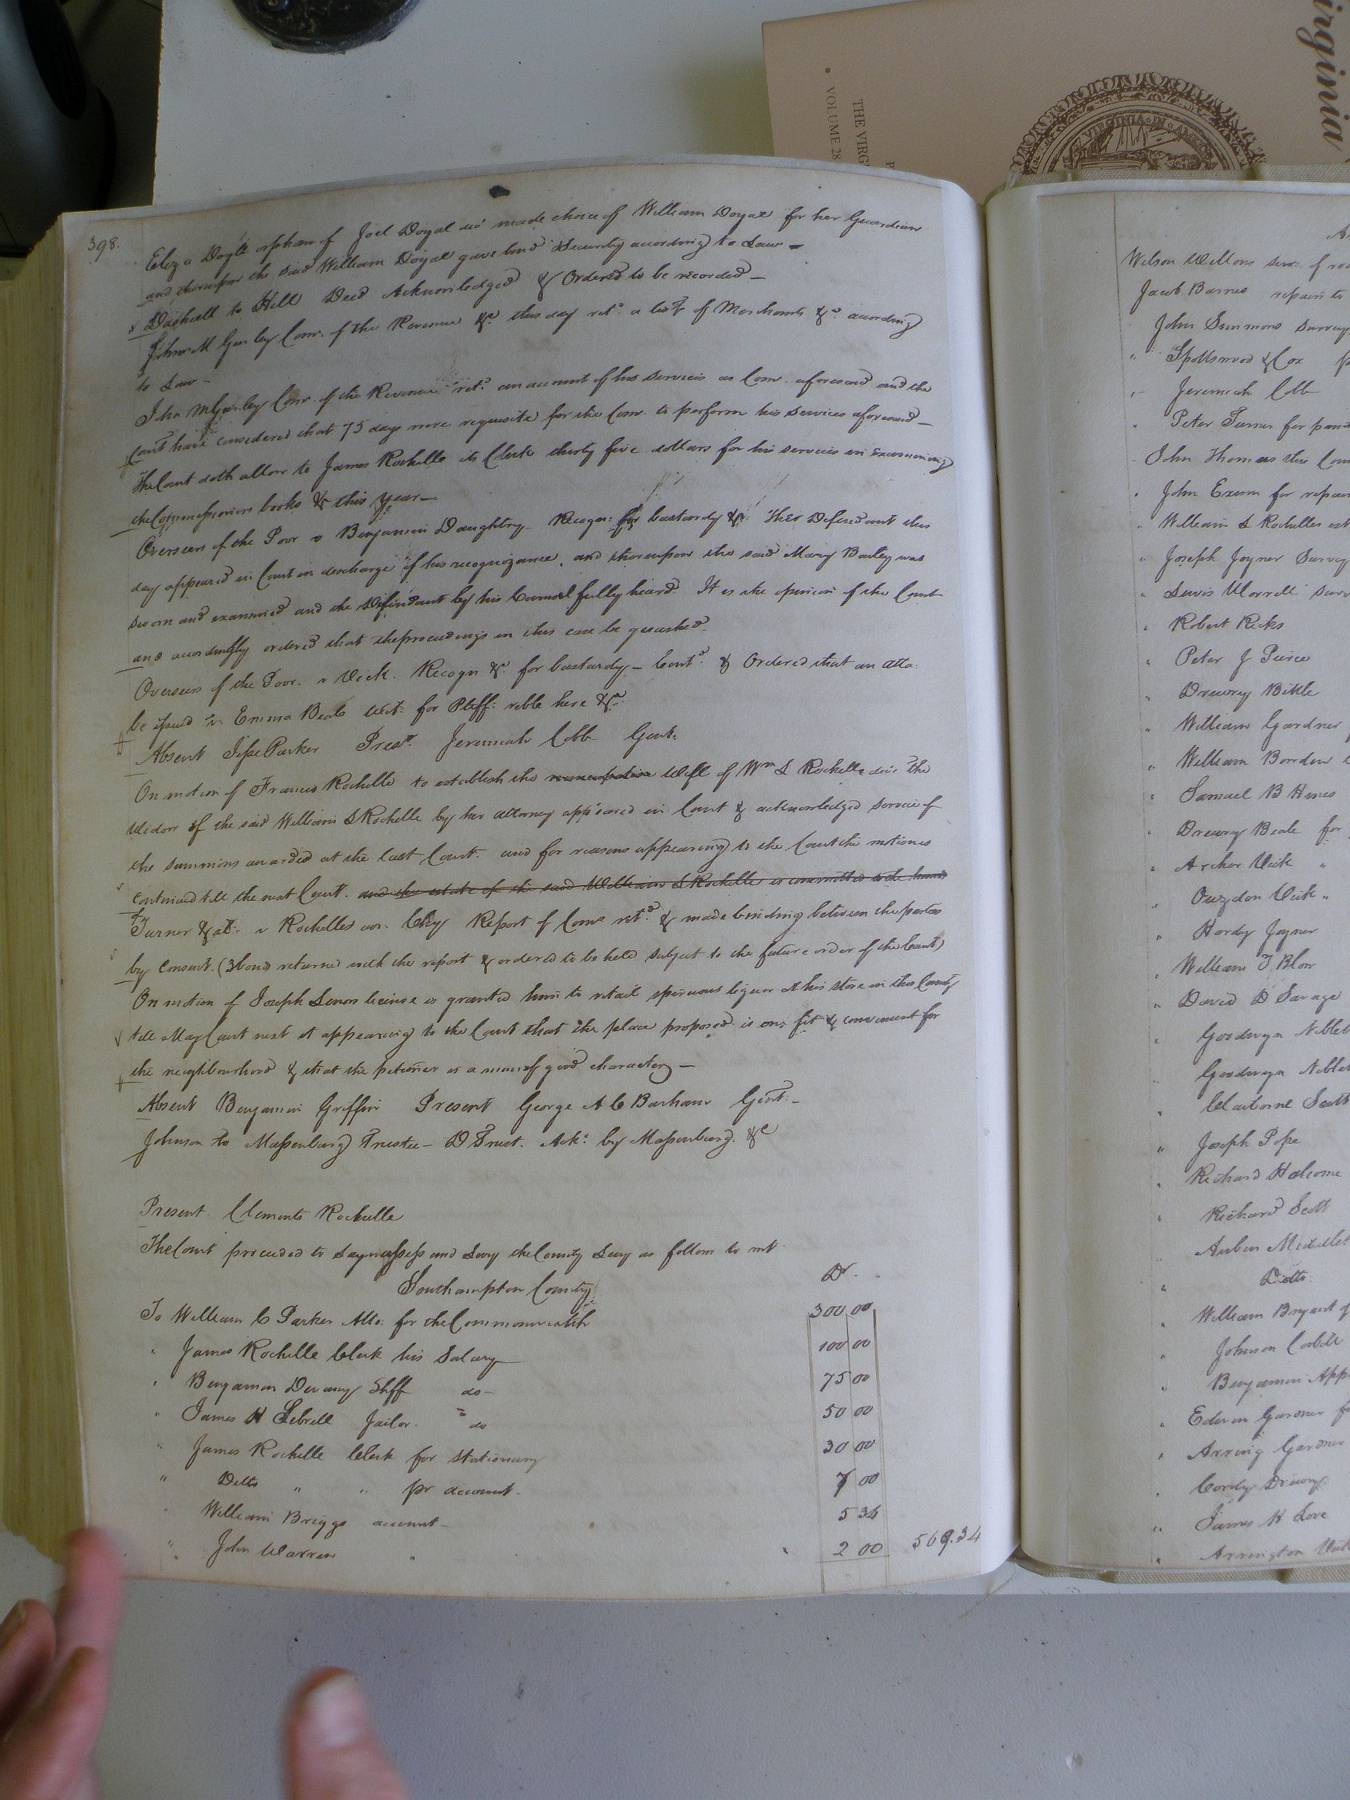 Virginia
THE VIRG
VOLUME 28
398.
Eliza Doyle orphan of Joel Doyal decd made choice of William Doyal for her Guardian
and thereupon the said William Doyal gave bond & security according to Law -
Dashiell to Hill Deed Acknowledged & Ordered to be recorded -
John M Gurley Comr. of the Revenue &c this day retd. a list of Merchants &c. according
to Law -
Jno McGurley Comr. of the Revenue retd. an account of his services as Comr. aforesaid and the
Court have considered that 75 days were requisite for the Comr. to perform his services aforesaid -
The Court doth allow to James Rochelle its Clerk thirty five dollars for his services in examining
the Commissioners books & this year -
Overseers of the Poor v Benjamin Daughtry. Recogn: for bastardy &c. The Defendant this
day appeared in Court in discharge of his recognizance, and thereupon the said Mary Bailey was
sworn and examined and the Defendant by his Counsel fully heard. It is the opinion of the Court
and accordingly ordered that the proceedings in this case be quashed.
Overseers of the Poor. v Vick. Recogn &c. for bastardy - Contd. & Ordered that an atta:
be issued vs. Emma Beale Wit: for Pltff: retble here &c.
Absent Jesse Parker Prest. Jeremiah Cobb Gent.
On motion of Frances Rochelle to establish the nuncupative Will of Wm S Rochelle decd the
widow of the said William S Rochelle by her attorney appeared in Court & acknowledged service of
the summons awarded at the last Court. and for reasons appearing to the Court the motion is
continued till the next Court. and the estate of the said William S Rochelle is committed to the hands
Turner & al: v Rochelles Report of Comrs retd. & made binding between the parties
by consent. (3 bonds returned with the report & ordered to be held subject to the future order of the Court)
On motion of Joseph license is granted him to retail spirituous liquor at his store in this County
till May Court next it appearing to the Court that the place proposed is one fit & convenient for
the neighbourhood & that the petitioner is a man of good character -
Absent Benjamin Griffin Present George A C Barham Gent: -
Johnson to Massenburg Trustee - D Trust. Ack: by Massenburg. &c
Present Clements Rochelle
The Court proceeded to and Levy the County Levy as follows to wit
Southampton County Dr.
To William C Parker Atto. for the Commonwealth 300 00
" James Rochelle Clerk his Salary 100 00
" Benjamin Devany Shff do - 75 00
" James H Sebrell Jailor. do 50 00
" James Rochelle Clerk for stationary 30 00
" Ditto " " pr account. 7 00
" William Briggs account - 5 34
" John Warren " 2 00 569.34
Wilson Wellons
Jacob Barnes repairs to
John Simmons Survey
" Spottswood & Cox
" Jeremiah Cobb
" Peter Turner for
" John Thomas this
" John Exum for repair
" William S Rochelles est
" Joseph Joyner Survey
" Lewis Worrell Surv
" Robert Ricks
" Peter J Pierce
" Drewry Bittle
" William Gardner
" William Bowden
" Samuel B Hines
" Drewry Beale for
" Archer Vick "
" Vick "
" Hardy Joyner
" William T Blow
" David D Savage
" Goodwyn
" Goodwyn
" Claiborne Scott
" Joseph Pope
" Richard Holcome
" Richard Scott
Ditto
" William Bryant
" Johnson Corbitt
" Benjamin
" Edwin Gardner
" Gardner
" Cordy Drewry
" James H Love
" Arrington